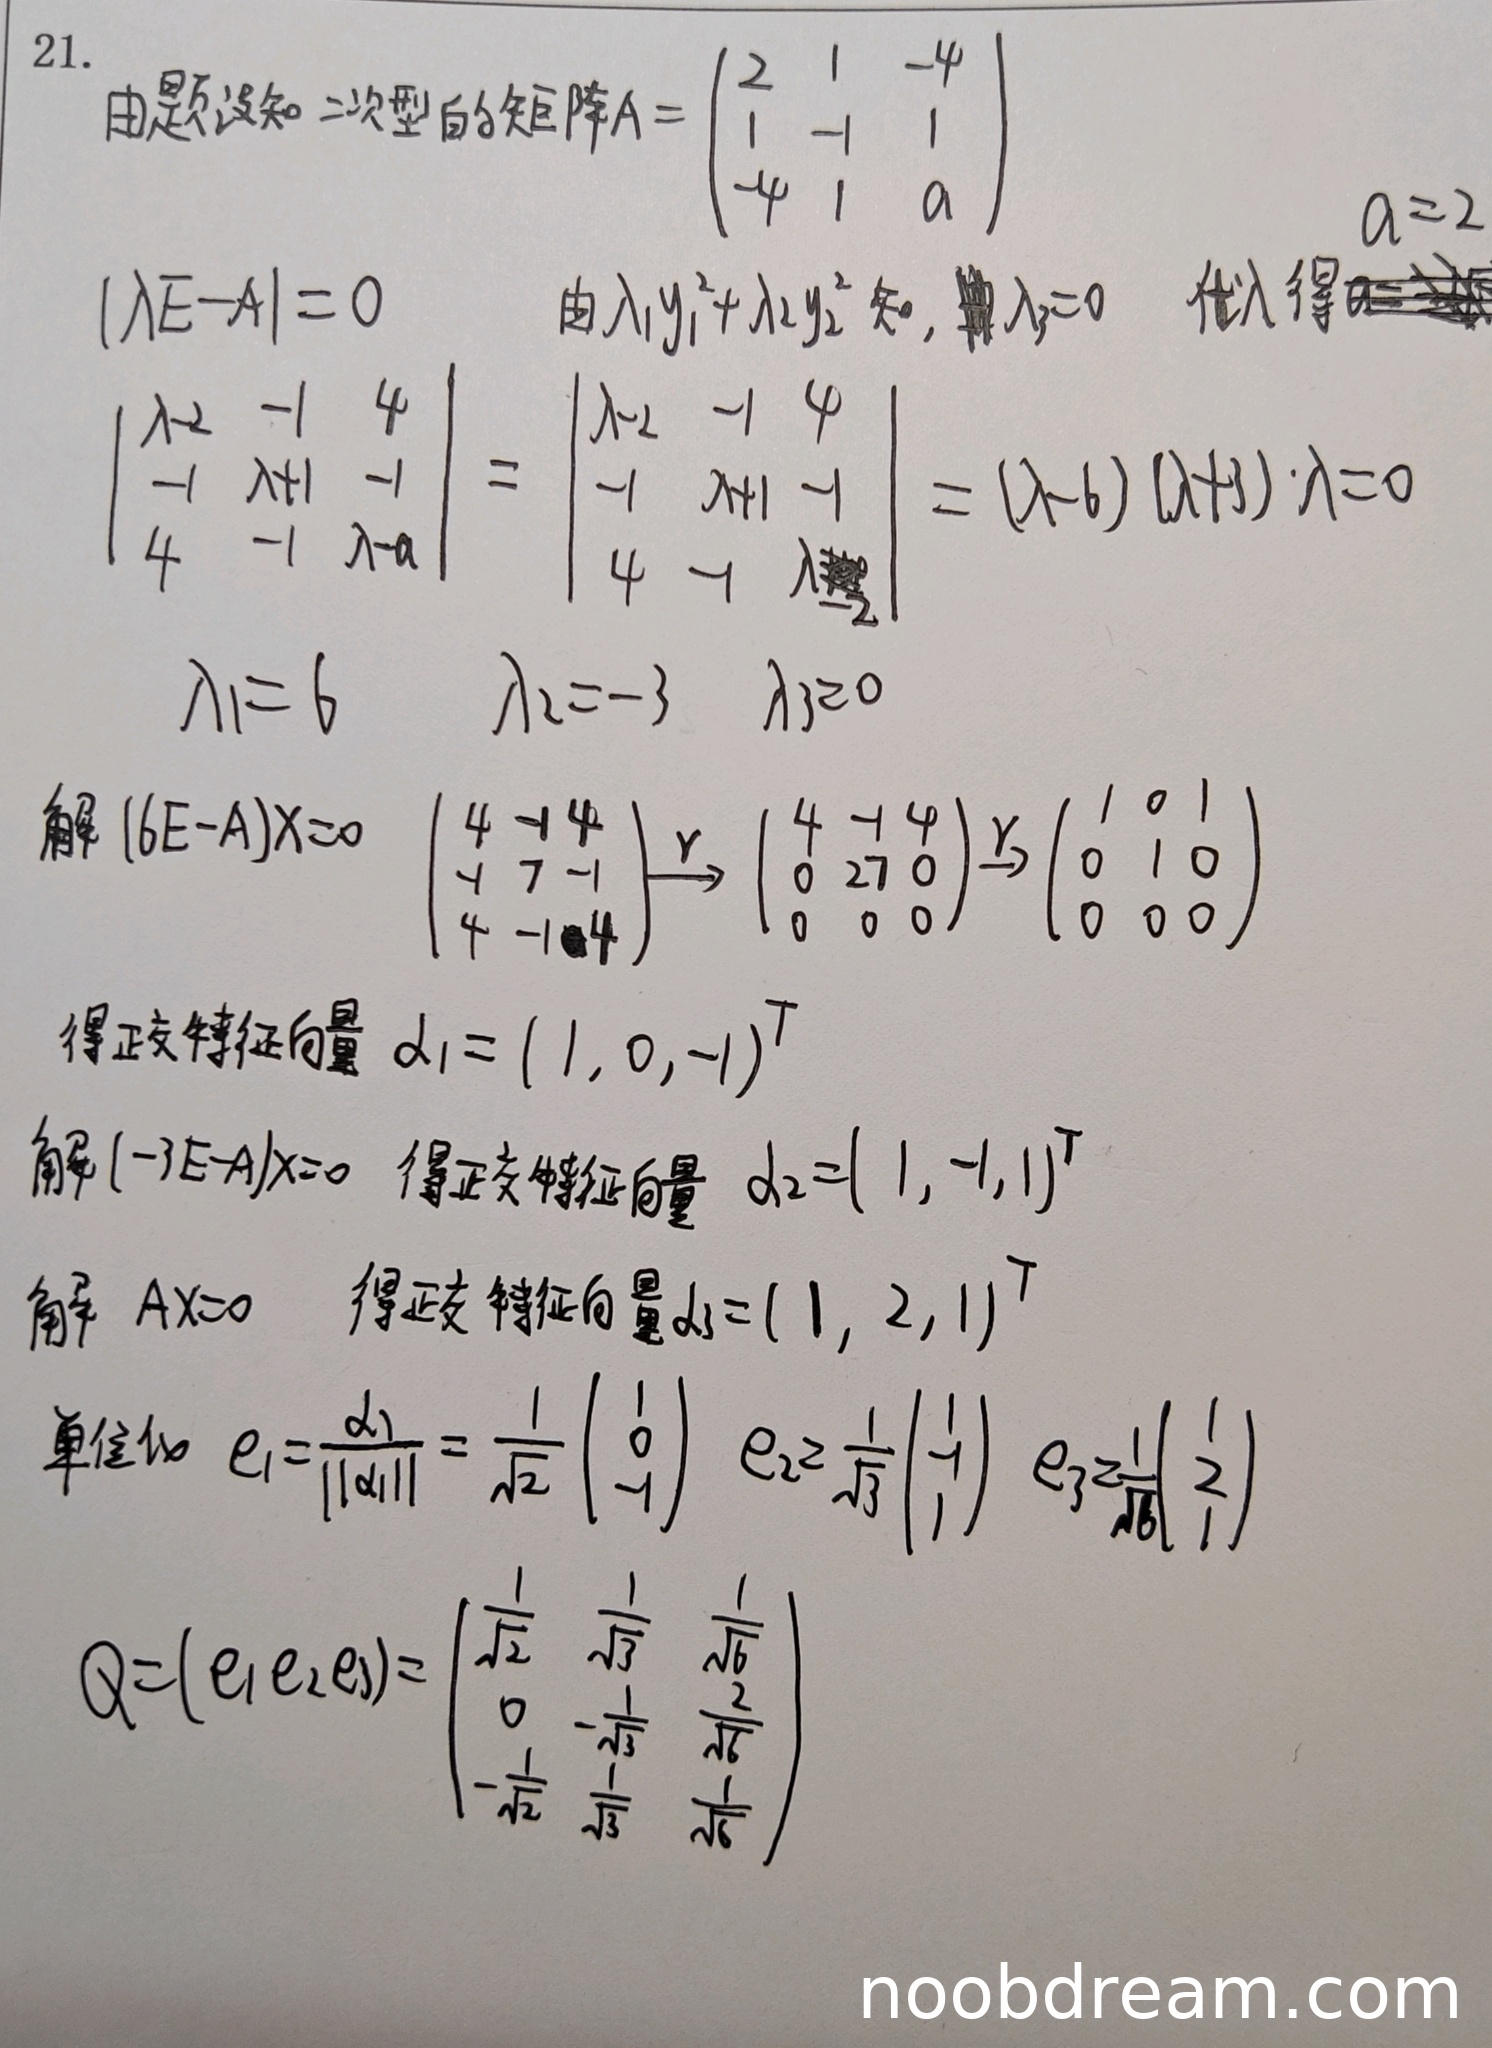 21.
由题设知 二次型的矩阵A = ( 2 1 -4
1 -1 1
-4 1 a )
a=2
|λE-A|=0 由λ₁y₁²+λ₂y₂² 知, λ₃=0 代入得
| λ-2 -1 4 | = | λ-2 -1 4 | = (λ-6)(λ+3)·λ=0
| -1 λ+1 -1 | | -1 λ+1 -1 |
| 4 -1 λ-a | | 4 -1 λ-2 |
λ1=6 λ2=-3 λ3=0
解 (6E-A)X=0 ( 4 -1 4 r→ ( 4 -1 4 r→ ( 1 0 1
-1 7 -1 0 27 0 0 1 0
4 -1 4 ) 0 0 0 ) 0 0 0 )
得正交特征向量 α1=(1,0,-1)ᵀ
解(-3E-A)x=0 得正交特征向量 α2=(1,-1,1)ᵀ
解 AX=0 得正交特征向量α3=(1,2,1)ᵀ
单位化 e1=α1/||α1||=1/√2 (1 0 -1) e2=1/√3 (1 -1 1) e3=1/√6 (1 2 1)
Q=(e1 e2 e3)= ( 1/√2 1/√3 1/√6
0 -1/√3 2/√6
-1/√2 1/√3 1/√6 )
noobdream.com